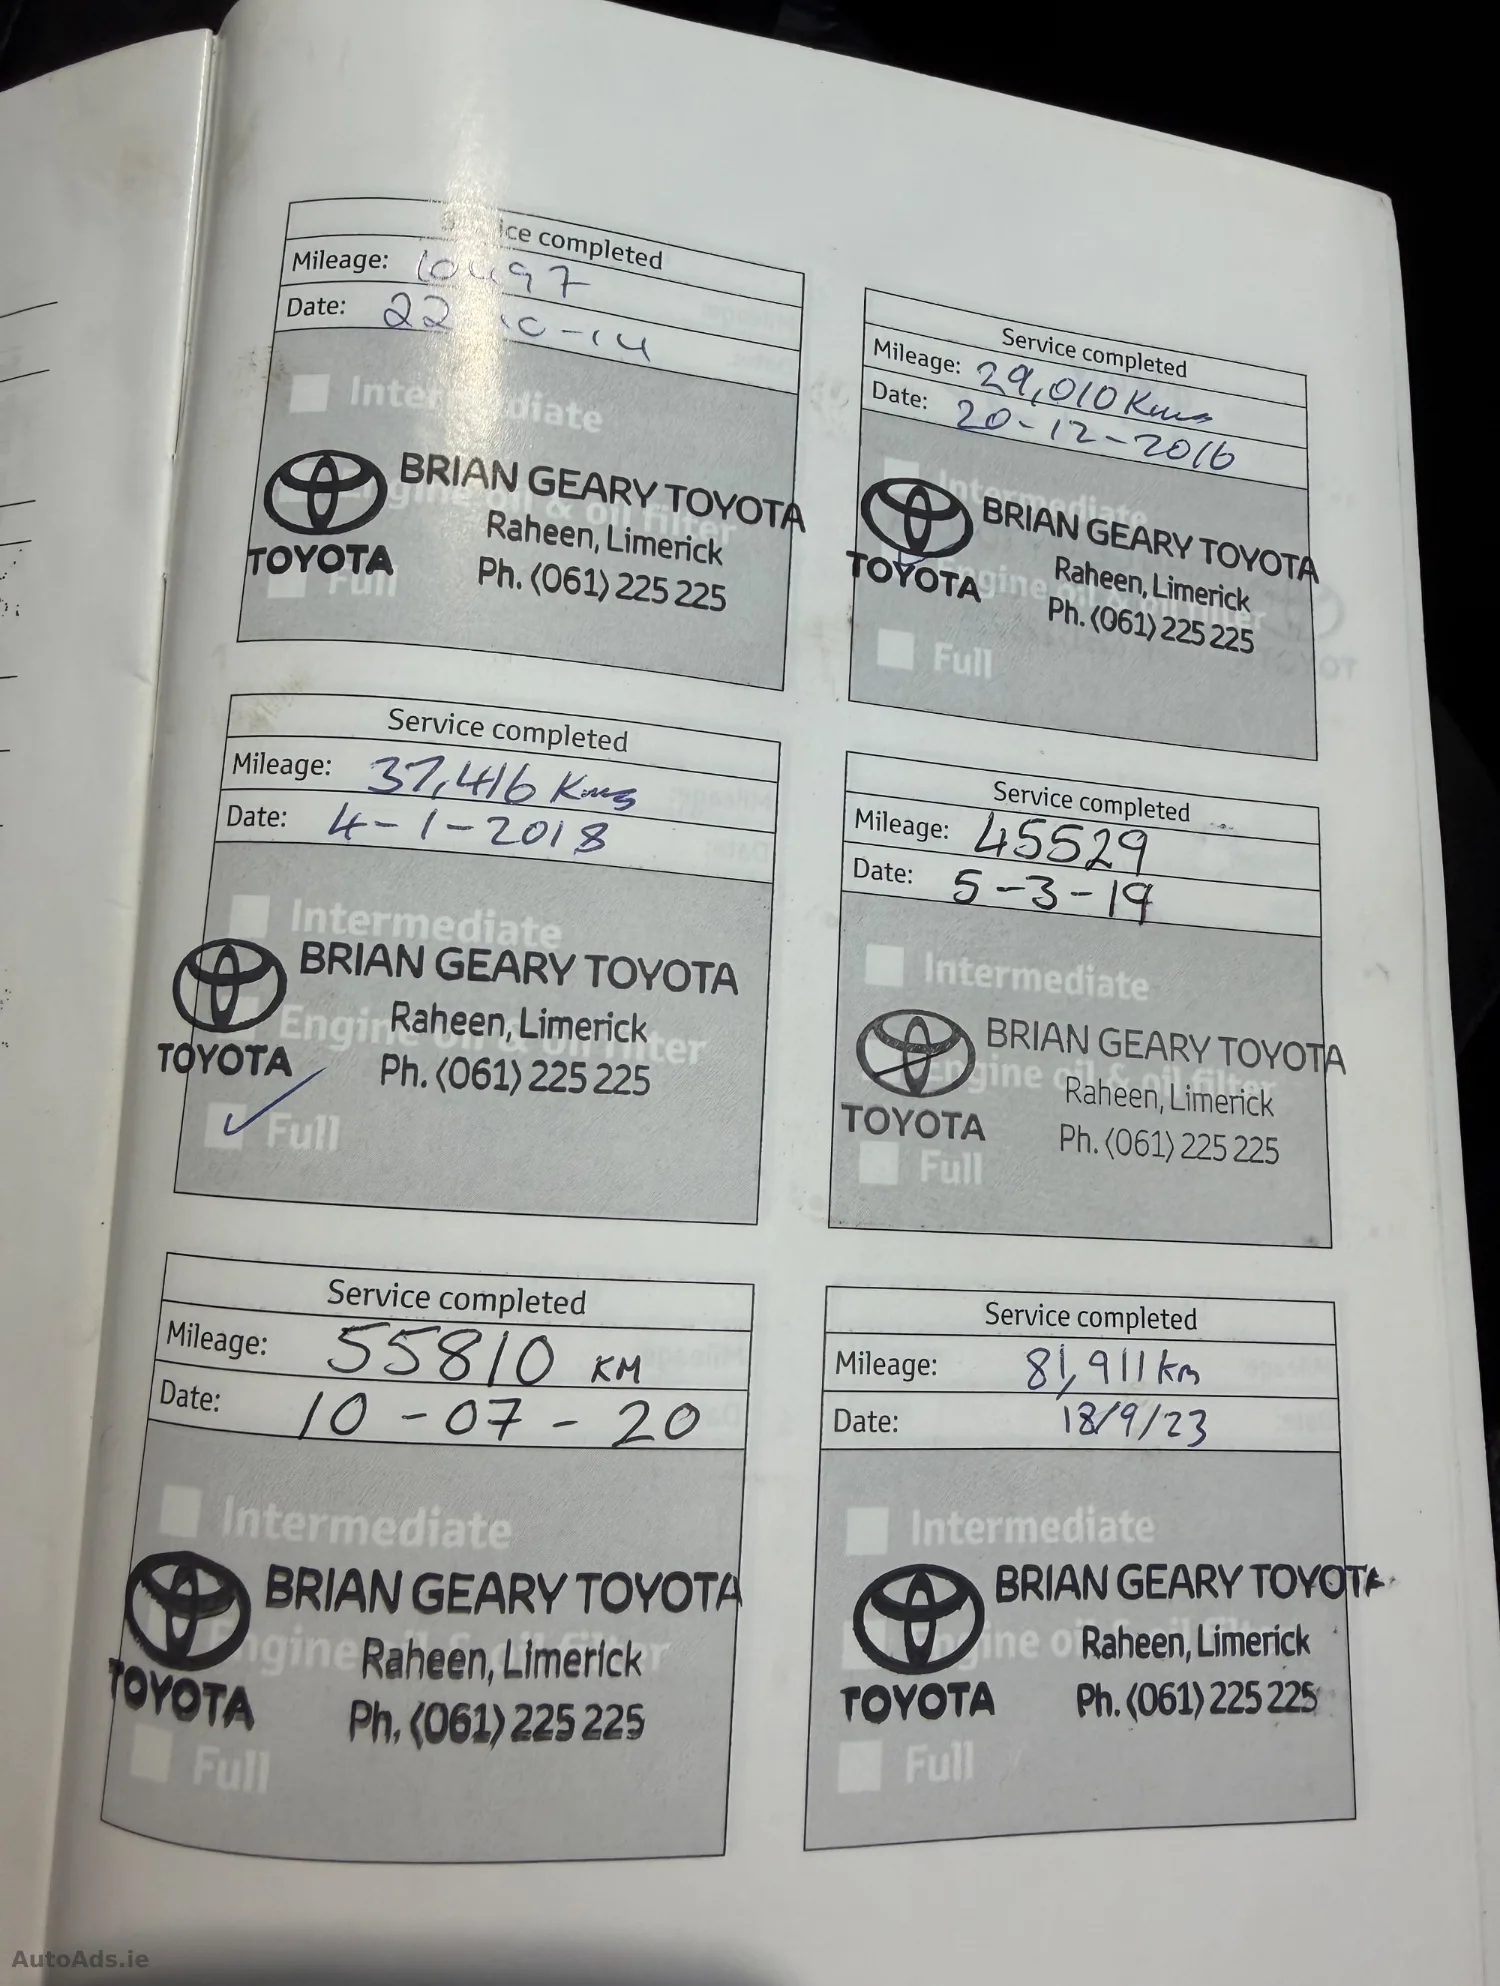 Service completed
Mileage: 10497
Date: 22-10-14
Intermediate
Engine oil & oil filter
Full
TOYOTA
BRIAN GEARY TOYOTA
Raheen, Limerick
Ph. (061) 225 225
Service completed
Mileage: 29,010 Kms
Date: 20-12-2016
Intermediate
Engine oil & oil filter
Full
TOYOTA
BRIAN GEARY TOYOTA
Raheen, Limerick
Ph. (061) 225 225
Service completed
Mileage: 37,416 Kms
Date: 4-1-2018
Intermediate
Engine oil & oil filter
Full
TOYOTA
BRIAN GEARY TOYOTA
Raheen, Limerick
Ph. (061) 225 225
Service completed
Mileage: 45529
Date: 5-3-19
Intermediate
Engine oil & oil filter
Full
TOYOTA
BRIAN GEARY TOYOTA
Raheen, Limerick
Ph. (061) 225 225
Service completed
Mileage: 55810 KM
Date: 10-07-20
Intermediate
Engine oil & oil filter
Full
TOYOTA
BRIAN GEARY TOYOTA
Raheen, Limerick
Ph. (061) 225 225
Service completed
Mileage: 81,911 km
Date: 18/9/23
Intermediate
Engine oil & oil filter
Full
TOYOTA
BRIAN GEARY TOYOTA
Raheen, Limerick
Ph. (061) 225 225
AutoAds.ie